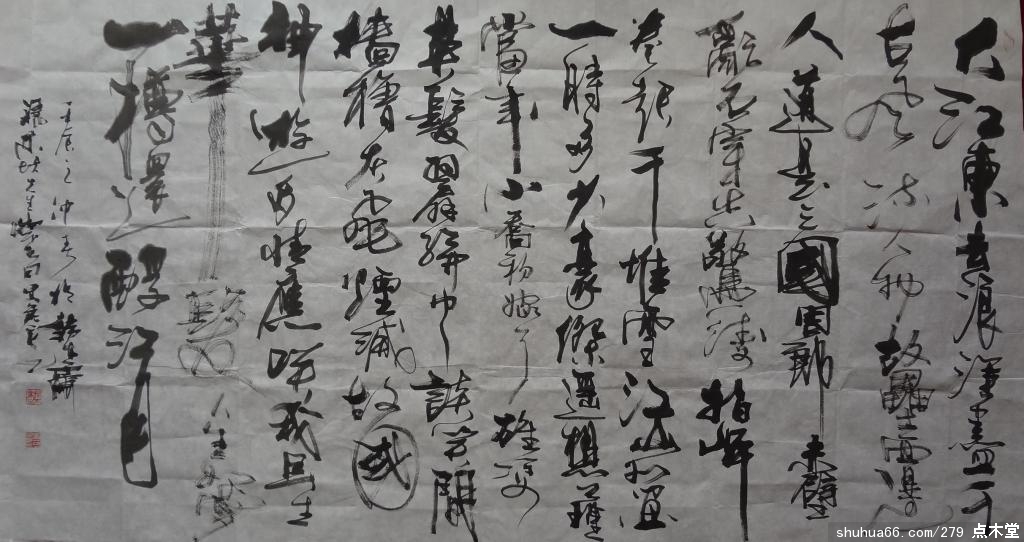 大江東去浪淘盡千
古風流人物故壘西邊
人道是三國周郎赤壁
亂石穿空驚濤拍岸
卷起千堆雪江山如畫
一時多少豪傑遙想公瑾
當年小喬初嫁了雄姿
英髮羽扇綸巾談笑間
檣櫓灰飛煙滅故國
神遊多情應笑我早生
華髮人生如夢
一樽還酹江月
壬辰之仲春於
shuhua66.com/279 点木堂